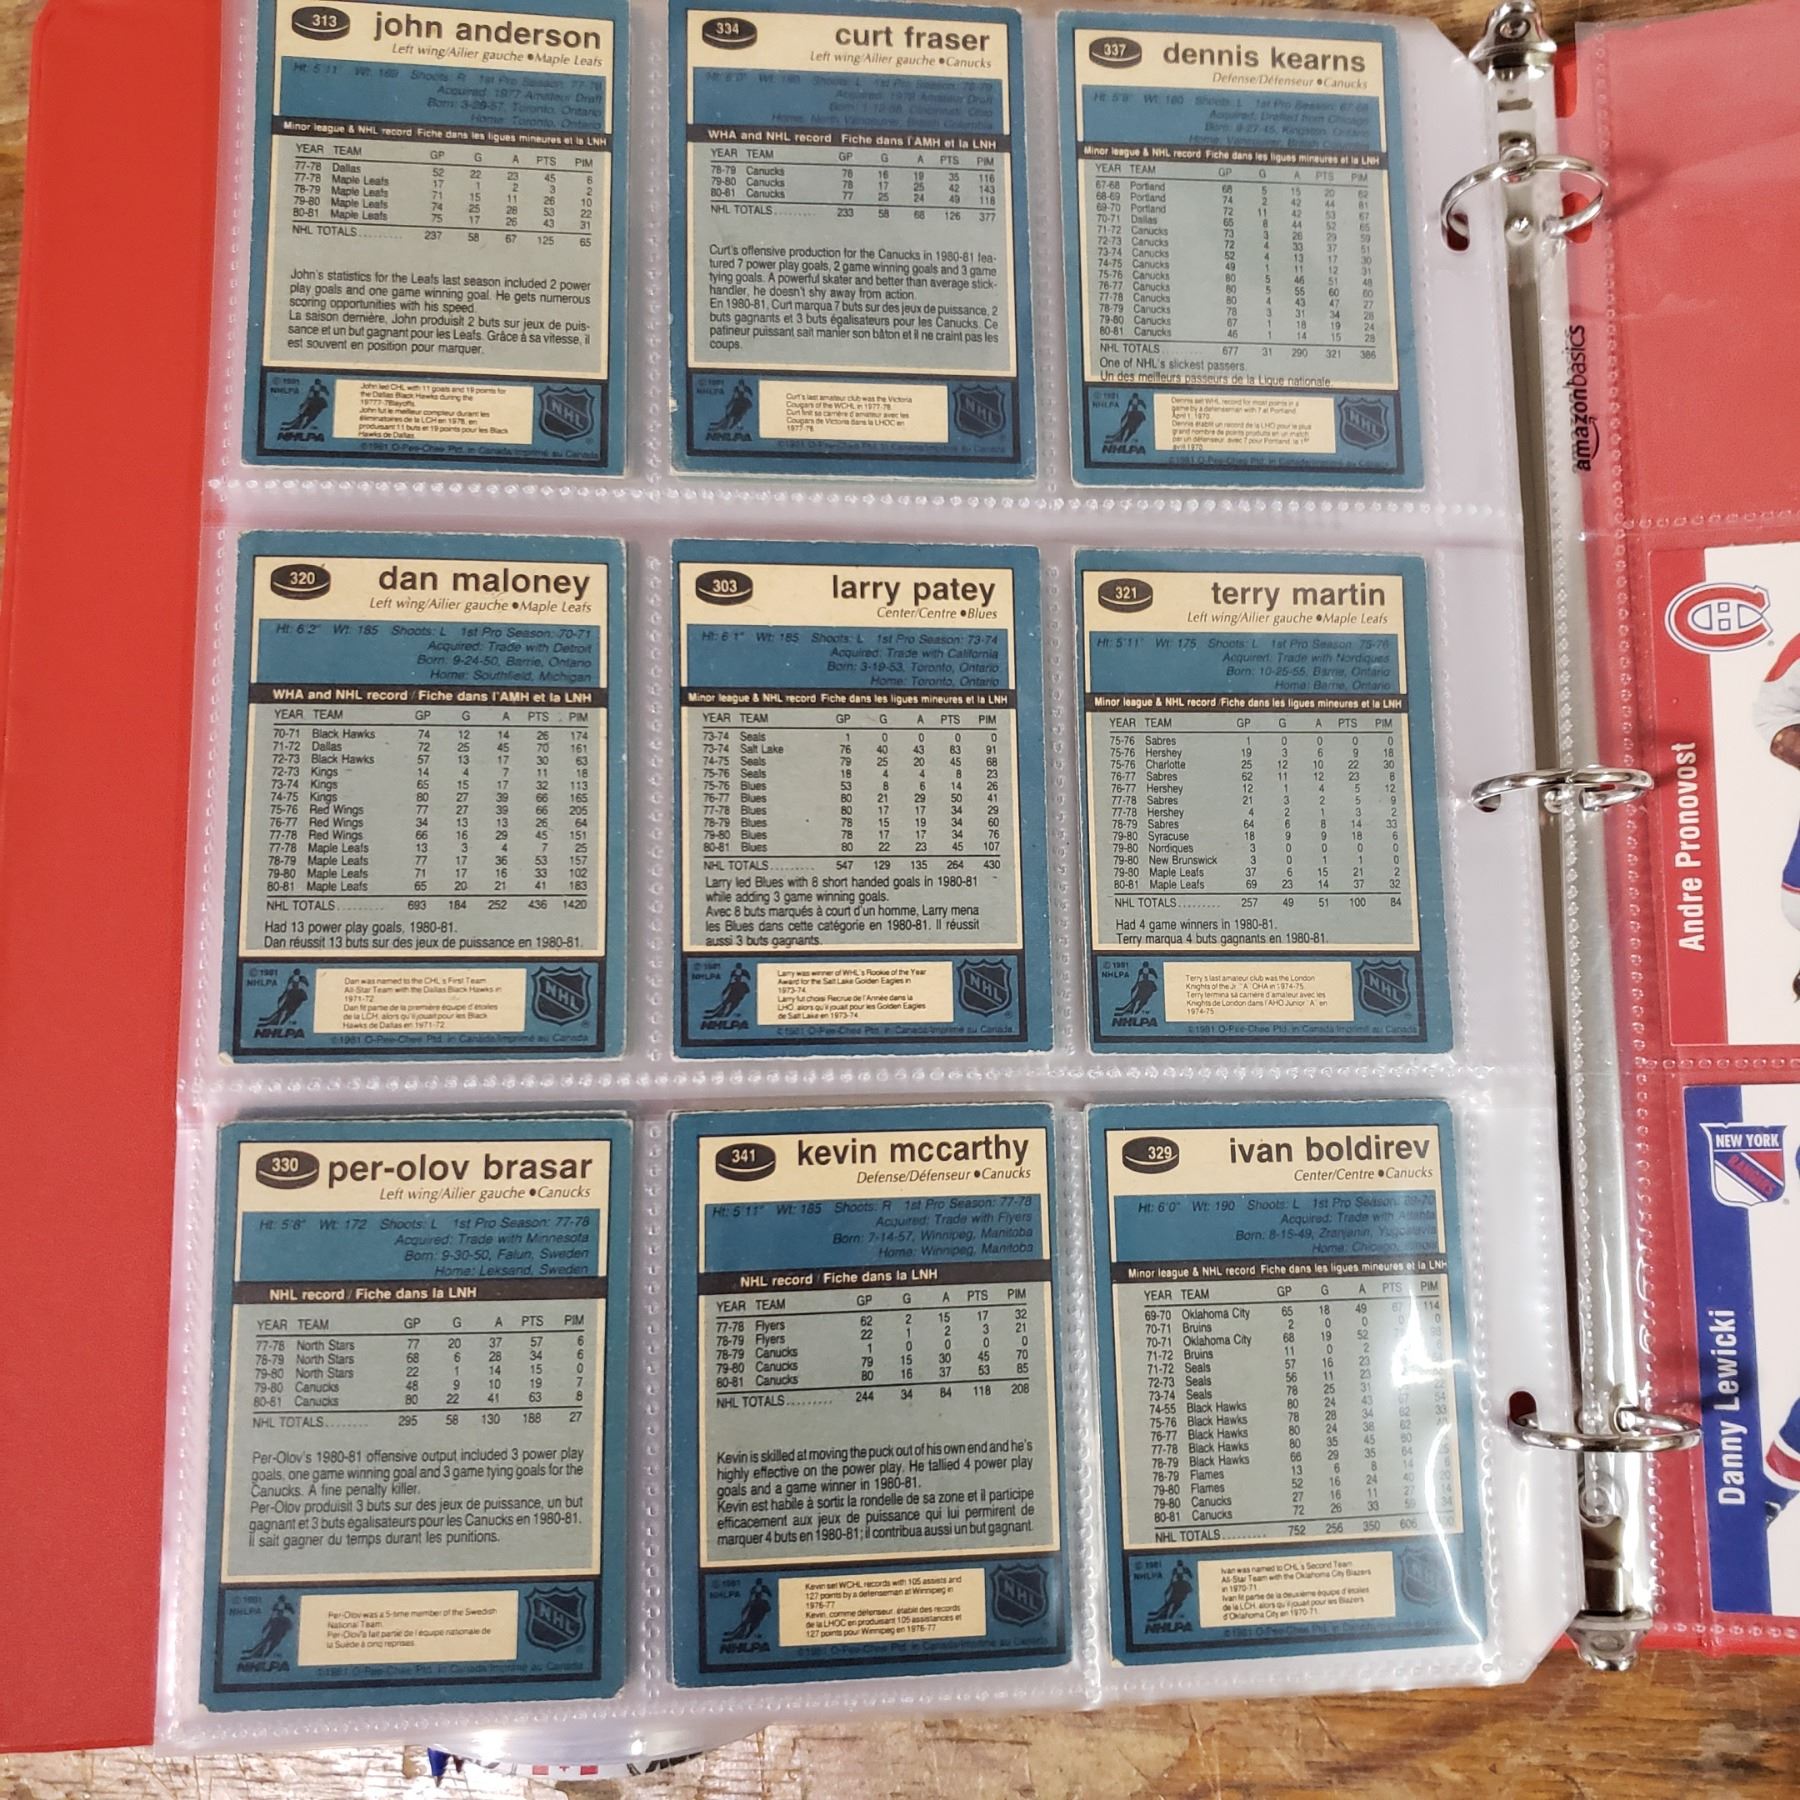 313
john anderson
Left wing/Ailier gauche •Maple Leafs
Ht: 5'11" Wt: 189 Shoots: R 1st Pro Season: 77-78
Acquired: 1977 Amateur Draft
Born: 3-28-57, Toronto, Ontario
Home: Toronto, Ontario
Minor league & NHL record Fiche dans les ligues mineures et la LNH
YEAR TEAM GP G A PTS PIM
77-78 Dallas 52 22 23 45 6
77-78 Maple Leafs 17 1 2 3 2
78-79 Maple Leafs 71 15 11 26 10
79-80 Maple Leafs 74 25 28 53 22
80-81 Maple Leafs 75 17 26 43 31
NHL TOTALS......... 237 58 67 125 65
John's statistics for the Leafs last season included 2 power
play goals and one game winning goal. He gets numerous
scoring opportunities with his speed.
La saison dernière, John produisit 2 buts sur jeux de puis-
sance et un but gagnant pour les Leafs. Grâce à sa vitesse, il
est souvent en position pour marquer.
© 1981
NHLPA
John led CHL with 11 goals and 19 points for
the Dallas Black Hawks during the
19777-78layoffs.
John fut le meilleur compteur durant les
éliminatoires de la LCH en 1978, en
produisant 11 buts et 19 points pour les Black
Hawks de Dallas.
NHLPA
NHL
©1981 O-Pee-Chee Ptd. in Canada/Imprimé au Canada
334
curt fraser
Left wing/Ailier gauche •Canucks
Acquired: 1978 Amateur Draft
Born: 1-12-58, Cincinnati, Ohio
Home: North Vancouver, British Columbia
WHA and NHL record / Fiche dans l'AMH et la LNH
YEAR TEAM GP G A PTS PIM
78-79 Canucks 78 16 19 35 116
79-80 Canucks 78 17 25 42 143
80-81 Canucks 77 25 24 49 118
NHL TOTALS......... 233 58 68 126 377
Curt's offensive production for the Canucks in 1980-81 fea-
tured 7 power play goals, 2 game winning goals and 3 game
tying goals. A powerful skater and better than average stick-
handler, he doesn't shy away from action.
En 1980-81, Curt marqua 7 buts sur des jeux de puissance, 2
buts gagnants et 3 buts égalisateurs pour les Canucks. Ce
patineur puissant sait manier son bâton et il ne craint pas les
coups.
© 1981
NHLPA
Curt's last amateur club was the Victoria
Cougars of the WCHL in 1977-78.
Curt finit sa carrière d'amateur avec les
Cougars de Victoria dans la LHOC en
1977-78.
NHLPA
NHL
©1981 O-Pee-Chee Ptd. in Canada/Imprimé au Canada
337
dennis kearns
Defense/Défenseur •Canucks
Ht: 5'9" Wt: 180 Shoots: L 1st Pro Season: 67-68
Acquired: Drafted from Chicago
Born: 9-27-45, Kingston, Ontario
Home: Vancouver, British Columbia
Minor league & NHL record Fiche dans les ligues mineures et la LNH
YEAR TEAM GP G A PTS PIM
67-68 Portland 68 5 15 20 62
68-69 Portland 74 2 42 44 81
69-70 Portland 72 11 42 53 67
70-71 Dallas 65 8 44 52 65
71-72 Canucks 73 3 26 29 59
72-73 Canucks 72 4 33 37 51
73-74 Canucks 52 4 13 17 30
74-75 Canucks 49 1 11 12 31
75-76 Canucks 80 5 46 51 48
76-77 Canucks 80 5 55 60 60
77-78 Canucks 80 4 43 47 27
78-79 Canucks 78 3 31 34 28
79-80 Canucks 67 1 18 19 24
80-81 Canucks 46 1 14 15 28
NHL TOTALS......... 677 31 290 321 386
One of NHL's slickest passers.
Un des meilleurs passeurs de la Ligue nationale.
© 1981
NHLPA
Dennis set WHL record for most points in a
game by a defenseman with 7 at Portland
April 1, 1970.
Dennis établit un record de la LHO pour le plus
grand nombre de points produits en un match
par un défenseur, avec 7 pour Portland, le 1er
avril 1970.
NHLPA
NHL
©1981 O-Pee-Chee Ptd. in Canada/Imprimé au Canada
320
dan maloney
Left wing/Ailier gauche •Maple Leafs
Ht: 6'2" Wt: 185 Shoots: L 1st Pro Season: 70-71
Acquired: Trade with Detroit
Born: 9-24-50, Barrie, Ontario
Home: Southfield, Michigan
WHA and NHL record / Fiche dans l'AMH et la LNH
YEAR TEAM GP G A PTS PIM
70-71 Black Hawks 74 12 14 26 174
71-72 Dallas 72 25 45 70 161
72-73 Black Hawks 57 13 17 30 63
72-73 Kings 14 4 7 11 18
73-74 Kings 65 15 17 32 113
74-75 Kings 80 27 39 66 165
75-76 Red Wings 77 27 39 66 205
76-77 Red Wings 34 13 13 26 64
77-78 Red Wings 66 16 29 45 151
77-78 Maple Leafs 13 3 4 7 25
78-79 Maple Leafs 77 17 36 53 157
79-80 Maple Leafs 71 17 16 33 102
80-81 Maple Leafs 65 20 21 41 183
NHL TOTALS......... 693 184 252 436 1420
Had 13 power play goals, 1980-81.
Dan réussit 13 buts sur des jeux de puissance en 1980-81.
© 1981
NHLPA
Dan was named to the CHL's First Team
All-Star Team with the Dallas Black Hawks in
1971-72.
Dan fit partie de la première équipe d'étoiles
de la LCH, alors qu'il jouait pour les Black
Hawks de Dallas en 1971-72.
NHLPA
NHL
©1981 O-Pee-Chee Ptd. in Canada/Imprimé au Canada
303
larry patey
Center/Centre •Blues
Ht: 6'1" Wt: 185 Shoots: L 1st Pro Season: 73-74
Acquired: Trade with California
Born: 3-19-53, Toronto, Ontario
Home: Toronto, Ontario
Minor league & NHL record Fiche dans les ligues mineures et la LNH
YEAR TEAM GP G A PTS PIM
73-74 Seals 1 0 0 0 0
73-74 Salt Lake 76 40 43 83 91
74-75 Seals 79 25 20 45 68
75-76 Seals 18 4 4 8 23
75-76 Blues 53 8 6 14 26
76-77 Blues 80 21 29 50 41
77-78 Blues 80 17 17 34 29
78-79 Blues 78 15 19 34 60
79-80 Blues 78 17 17 34 76
80-81 Blues 80 22 23 45 107
NHL TOTALS......... 547 129 135 264 430
Larry led Blues with 8 short handed goals in 1980-81
while adding 3 game winning goals.
Avec 8 buts marqués à court d'un homme, Larry mena
les Blues dans cette catégorie en 1980-81. Il réussit
aussi 3 buts gagnants.
© 1981
NHLPA
Larry was winner of WHL's Rookie of the Year
Award for the Salt Lake Golden Eagles in
1973-74.
Larry fut choisi Recrue de l'Année dans la
LHO, alors qu'il jouait pour les Golden Eagles
de Salt Lake en 1973-74.
NHLPA
NHL
©1981 O-Pee-Chee Ptd. in Canada/Imprimé au Canada
321
terry martin
Left wing/Ailier gauche •Maple Leafs
Ht: 5'11" Wt: 175 Shoots: L 1st Pro Season: 75-76
Acquired: Trade with Nordiques
Born: 10-25-55, Barrie, Ontario
Home: Barrie, Ontario
Minor league & NHL record /Fiche dans les ligues mineures et la LNH
YEAR TEAM GP G A PTS PIM
75-76 Sabres 1 0 0 0 0
75-76 Hershey 19 3 6 9 18
75-76 Charlotte 25 12 10 22 30
76-77 Sabres 62 11 12 23 8
76-77 Hershey 12 1 4 5 12
77-78 Sabres 21 3 2 5 9
77-78 Hershey 4 2 1 3 2
78-79 Sabres 64 6 8 14 33
79-80 Syracuse 18 9 9 18 6
79-80 Nordiques 3 0 0 0 0
79-80 New Brunswick 3 0 1 1 0
79-80 Maple Leafs 37 6 15 21 2
80-81 Maple Leafs 69 23 14 37 32
NHL TOTALS......... 257 49 51 100 84
Had 4 game winners in 1980-81.
Terry marqua 4 buts gagnants en 1980-81.
© 1981
NHLPA
Terry's last amateur club was the London
Knights of the Jr. "A" OHA in 1974-75.
Terry termina sa carrière d'amateur avec les
Knights de London dans l'AHO Junior "A" en
1974-75.
NHLPA
NHL
©1981 O-Pee-Chee Ptd. in Canada/Imprimé au Canada
330
per-olov brasar
Left wing/Ailier gauche •Canucks
Ht: 5'8" Wt: 172 Shoots: L 1st Pro Season: 77-78
Acquired: Trade with Minnesota
Born: 9-30-50, Falun, Sweden
Home: Leksand, Sweden
NHL record / Fiche dans la LNH
YEAR TEAM GP G A PTS PIM
77-78 North Stars 77 20 37 57 6
78-79 North Stars 68 6 28 34 6
79-80 North Stars 22 1 14 15 0
79-80 Canucks 48 9 10 19 7
80-81 Canucks 80 22 41 63 8
NHL TOTALS........ 295 58 130 188 27
Per-Olov's 1980-81 offensive output included 3 power play
goals, one game winning goal and 3 game tying goals for the
Canucks. A fine penalty killer.
Per-Olov produisit 3 buts sur des jeux de puissance, un but
gagnant et 3 buts égalisateurs pour les Canucks en 1980-81.
Il sait gagner du temps durant les punitions.
© 1981
NHLPA
Per-Olov was a 5-time member of the Swedish
National Team.
Per-Olov a fait partie de l'équipe nationale de
la Suède à cinq reprises.
NHLPA
NHL
©1981 O-Pee-Chee Ptd. in Canada/Imprimé au Canada
341
kevin mccarthy
Defense/Défenseur •Canucks
Ht: 5'11" Wt: 185 Shoots: R 1st Pro Season: 77-78
Acquired: Trade with Flyers
Born: 7-14-57, Winnipeg, Manitoba
Home: Winnipeg, Manitoba
NHL record / Fiche dans la LNH
YEAR TEAM GP G A PTS PIM
77-78 Flyers 62 2 15 17 32
78-79 Flyers 22 1 2 3 21
78-79 Canucks 1 0 0 0 0
79-80 Canucks 79 15 30 45 70
80-81 Canucks 80 16 37 53 85
NHL TOTALS......... 244 34 84 118 208
Kevin is skilled at moving the puck out of his own end and he's
highly effective on the power play. He tallied 4 power play
goals and a game winner in 1980-81.
Kevin est habile à sortir la rondelle de sa zone et il participe
efficacement aux jeux de puissance qui lui permirent de
marquer 4 buts en 1980-81; il contribua aussi un but gagnant.
© 1981
NHLPA
Kevin set WCHL records with 105 assists and
127 points by a defenseman at Winnipeg in
1976-77.
Kevin, comme défenseur, établit des records
de la LHOC en produisant 105 assistances et
127 points pour Winnipeg en 1976-77.
NHLPA
NHL
©1981 O-Pee-Chee Ptd. in Canada/Imprimé au Canada
329
ivan boldirev
Center/Centre •Canucks
Ht: 6'0" Wt: 190 Shoots: L 1st Pro Season: 69-70
Acquired: Trade with Atlanta
Born: 8-15-49, Zranjanin, Yugoslavia
Home: Chicago, Illinois
Minor league & NHL record Fiche dans les ligues mineures et la LNH
YEAR TEAM GP G A PTS PIM
69-70 Oklahoma City 65 18 49 67 114
70-71 Bruins 2 0 0 0 0
70-71 Oklahoma City 68 19 52
71-72 Bruins 11 0 2
71-72 Seals 57 16 23
72-73 Seals 56 11 23
73-74 Seals 78 25 31
74-55 Black Hawks 80 24 43 67 54
75-76 Black Hawks 78 28 34 62 33
76-77 Black Hawks 80 24 38 62
77-78 Black Hawks 80 35 45 80
78-79 Black Hawks 66 29 35 64
78-79 Flames 13 6 8 14 6
79-80 Flames 52 16 24 40 20
79-80 Canucks 27 16 11 27 14
80-81 Canucks 72 26 33 59 34
NHL TOTALS......... 752 256 350 606
© 1981
NHLPA
Ivan was named to CHL's Second Team
All-Star Team with the Oklahoma City Blazers
in 1970-71.
Ivan fit partie de la deuxième équipe d'étoiles
de la LCH, alors qu'il jouait pour les Blazers
d'Oklahoma City en 1970-71.
NHLPA
NHL
©1981 O-Pee-Chee Ptd. in Canada/Imprimé au Canada
amazonbasics
Andre Pronovost
NEW YORK
RANGERS
Danny Lewicki